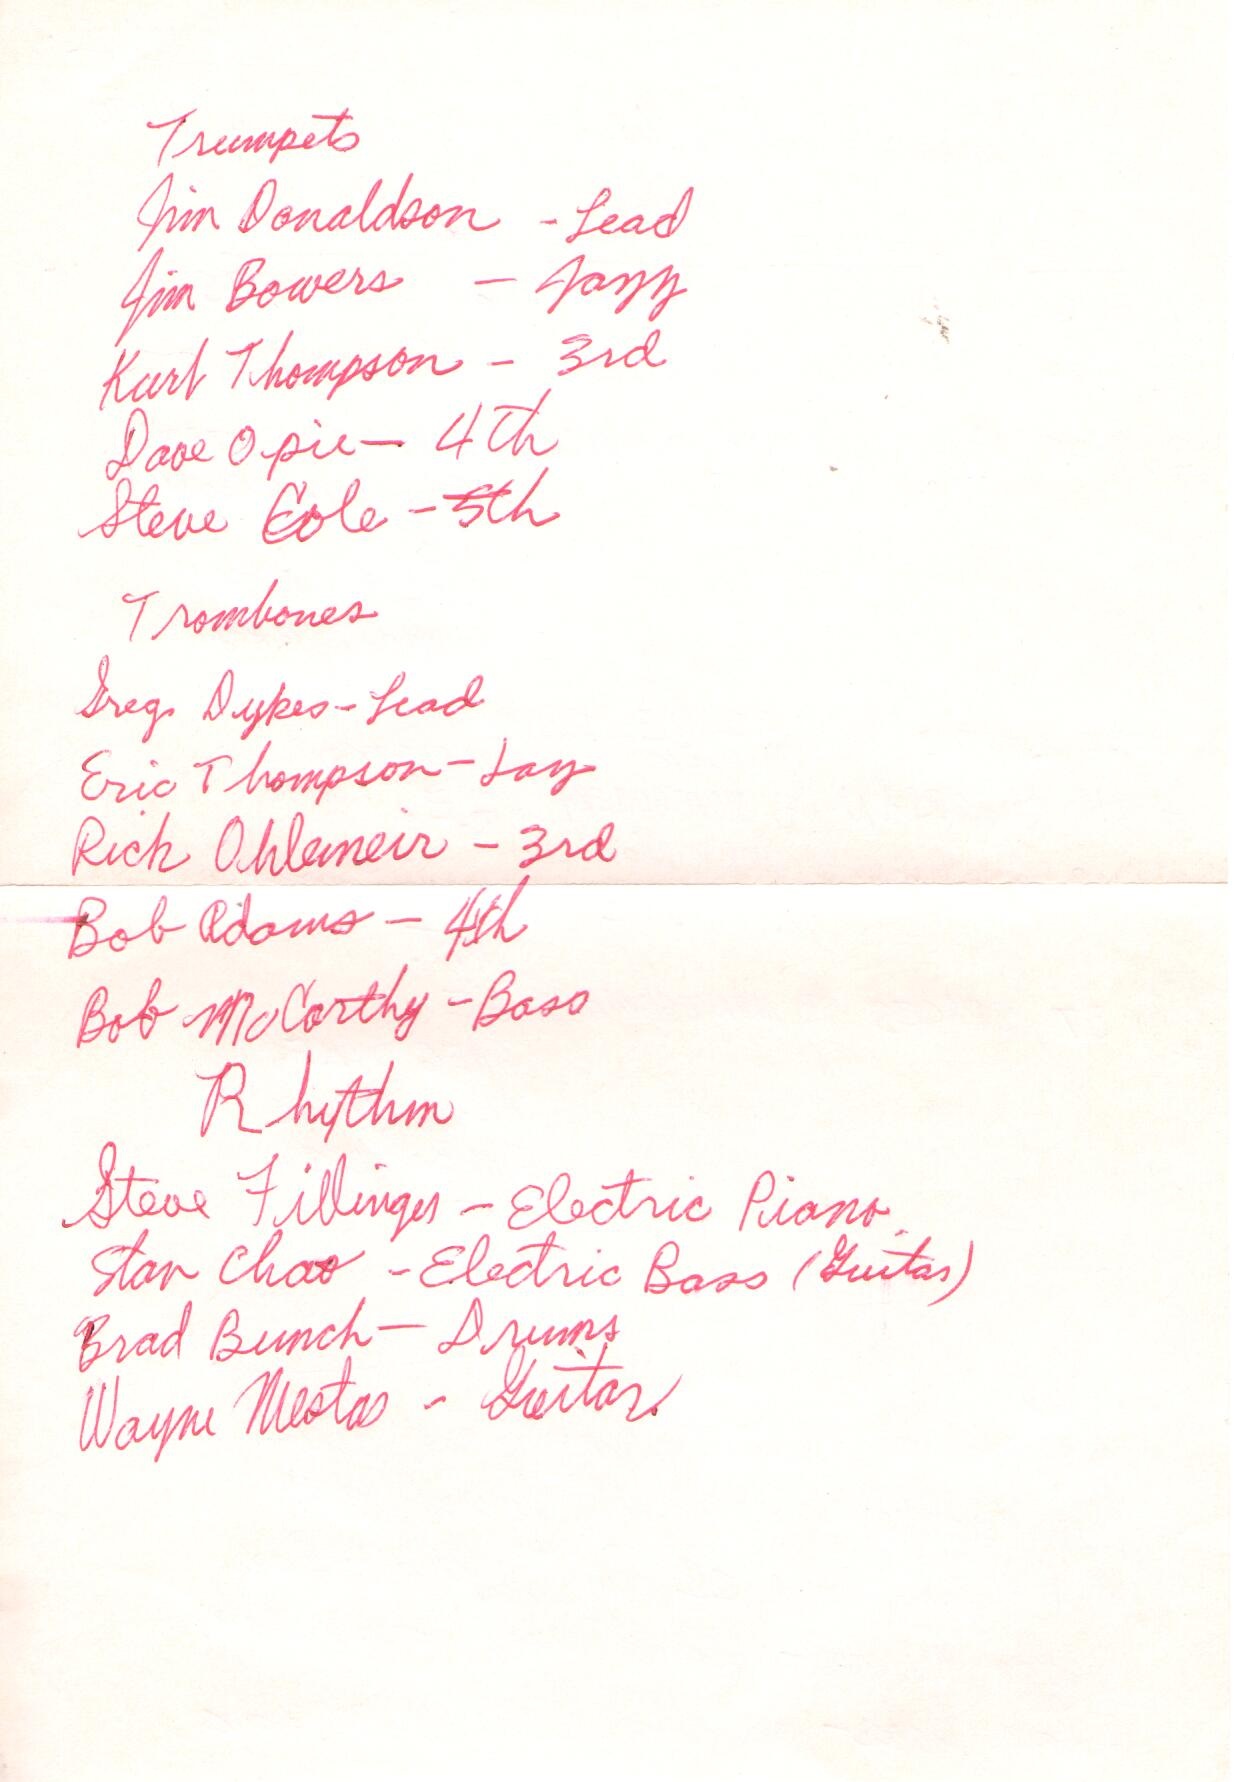 Trumpets
Jim Donaldson - Lead
Jim Bowers - Jazz
Kurt Thompson - 3rd
Dave Opie - 4th
Steve Cole - 5th
Trombones
Greg Dykes - Lead
Eric Thompson -
Rick Ohlemeir - 3rd
Bob Adams - 4th
Bob McCarthy - Bass
Rhythm
Steve Fillinger - Electric Piano
Stan Chao - Electric Bass (Guitar)
Brad Bunch - Drums
Wayne Mestas - Guitar